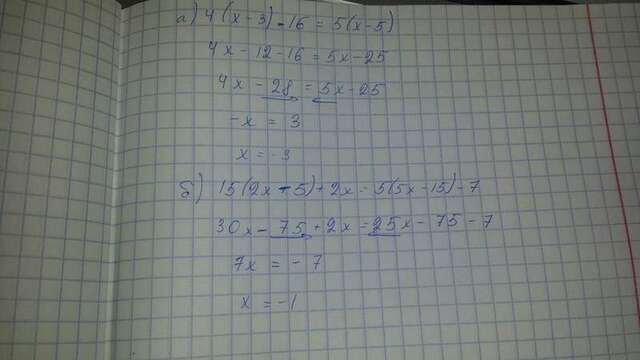 а) 4(x-3)-16 = 5(x-5)
4x-12-16 = 5x-25
4x-28 = 5x-25
-x = 3
x = -3
б) 15(2x-5)+2x = 5(5x-15)-7
30x-75+2x = 25x-75-7
7x = -7
x = -1